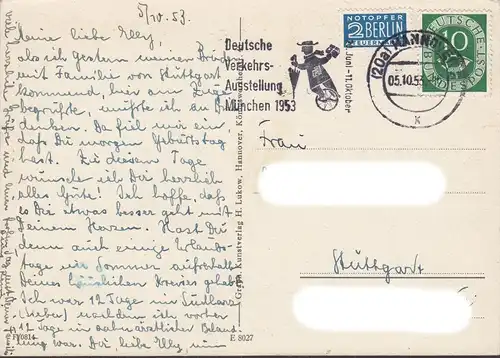 5/10.53.
Meine liebe Elly,
als ich gestern meinen Bruder
mit Familie von Stuttgart
kommend, hier am Zuge
begrüßte, mußte ich an Dich
denken. Da fiel mir ein,
daß Du morgen Geburtstag
hast. Zu diesem Tage
wünsche ich Dir herzlich
alles Gute! Ich hoffe, daß
es Dir etwas besser geht mit
Deinem Herzen. Hast Du
denn auch einige Urlaubs-
tage im Sommer außerhalb
Deines häuslichen Kreises gehabt
Ich war 12 Tage im Südharz
nachdem ich vorher
12 Tage in
war. Dir liebe Elly, ein
viel herzlich Grüße und
F10814
E 8027
Gredy. Kunstverlag H. Lukow, Hannover,
Deutsche
Verkehrs-
Ausstellung
München 1953
Juni-11. Oktober
NOTOPFER
2 BERLIN
STEUERMARKE
DEUTSCHE POST
10
(20a) HANNOVER
05.10.53
x
Frau
Stuttgart